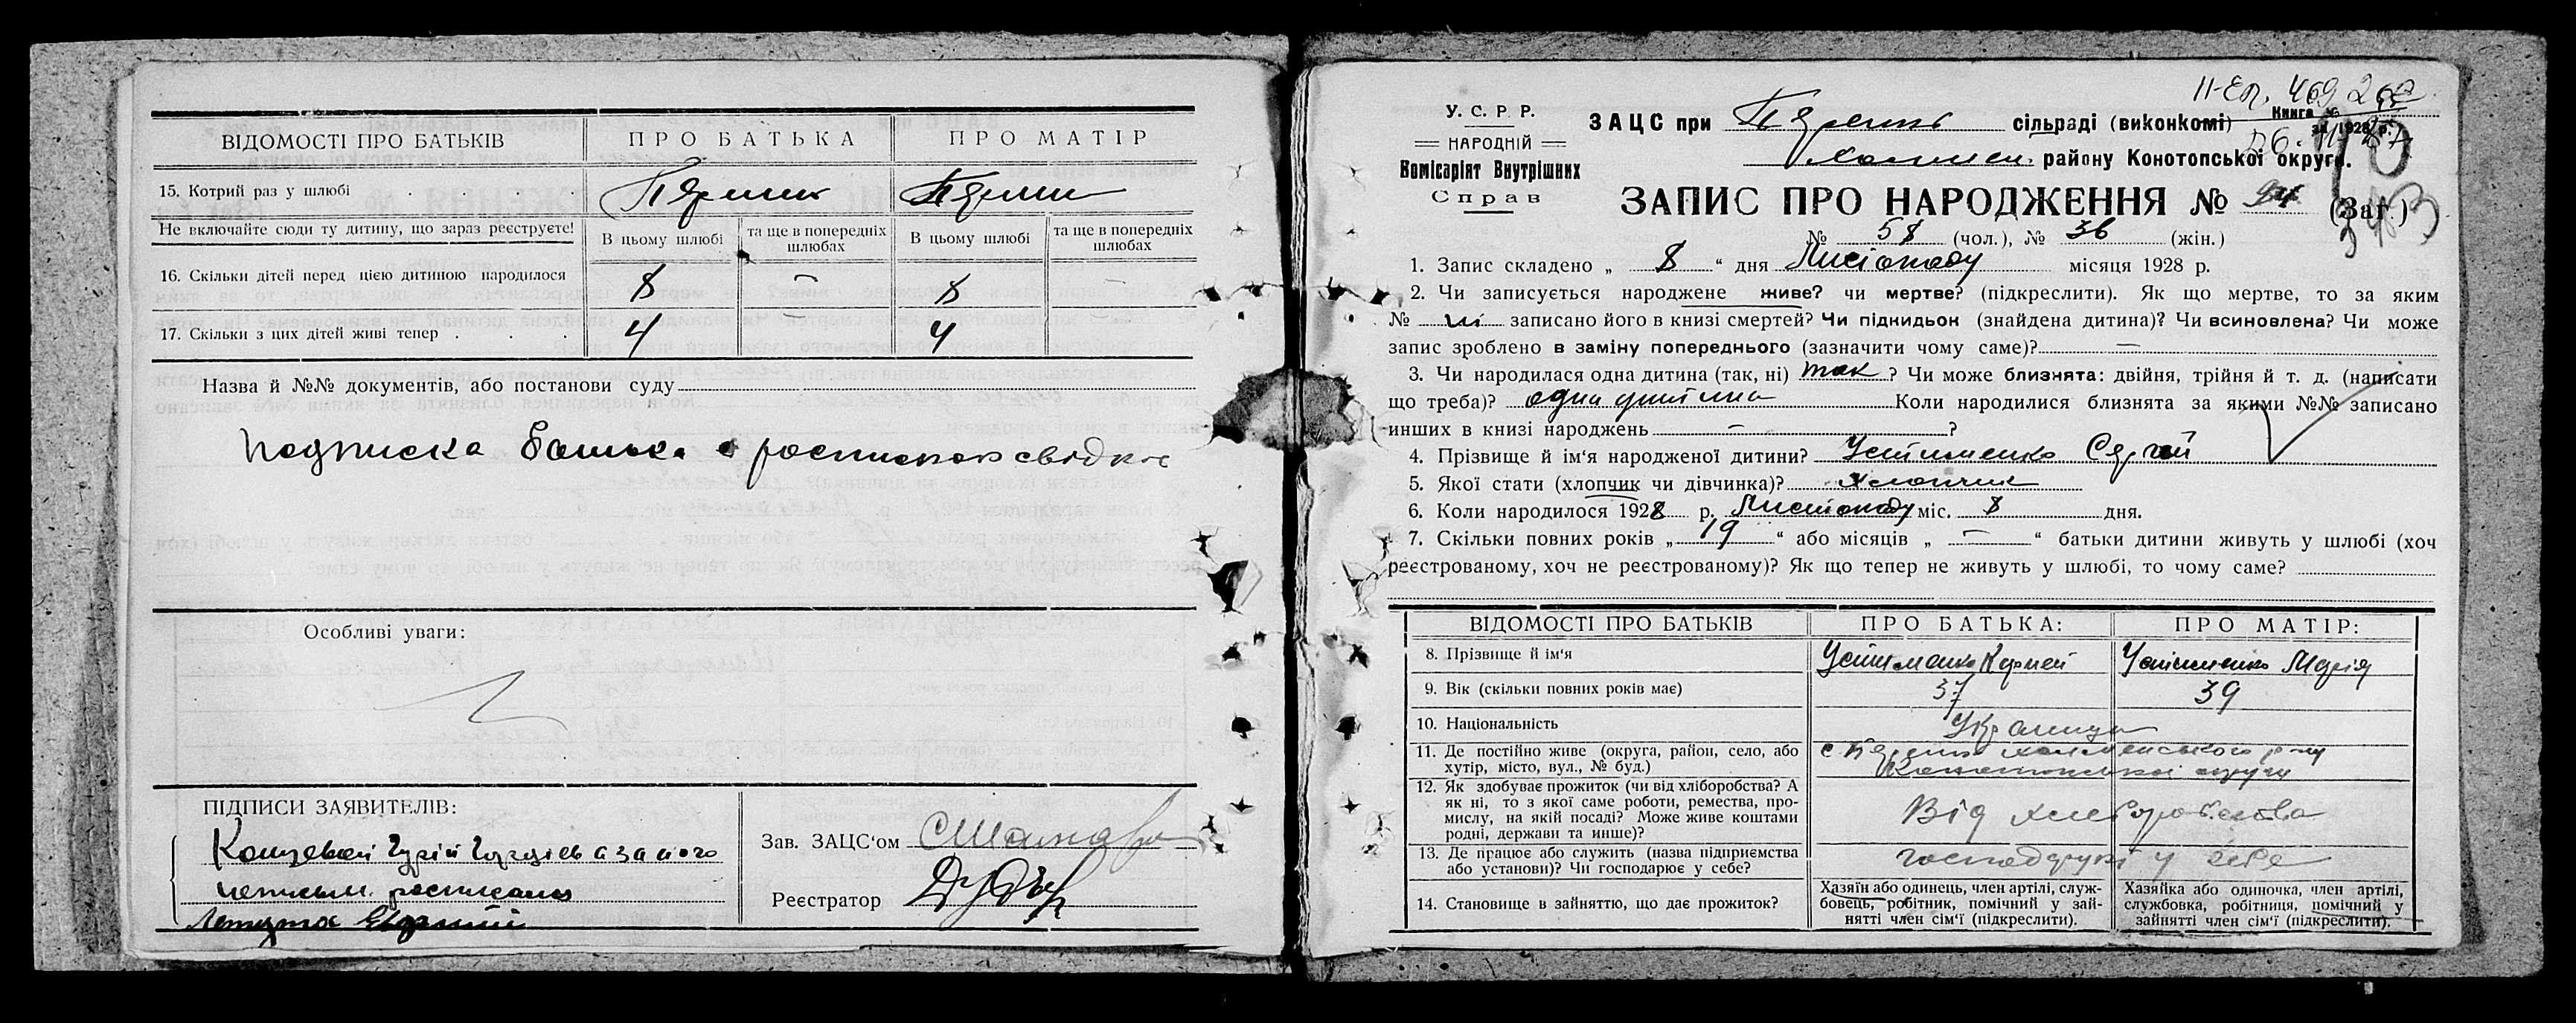 ВІДОМОСТІ ПРО БАТЬКІВ
ПРО БАТЬКА
ПРО МАТІР
15. Котрий раз у шлюбі
Не включайте сюди ту дитину, що зараз реєструєте!
В цьому шлюбі
та ще в попередніх шлюбах
В цьому шлюбі
та ще в попередніх шлюбах
16. Скільки дітей перед цією дитиною народилося 8 — 8 —
17. Скільки з цих дітей живі тепер . . . 4 — 4 —
Назва й №№ документів, або постанови суду
подписка батька
Особливі уваги:
ПІДПИСИ ЗАЯВИТЕЛІВ:
Зав. ЗАЦС‘ом
Реєстратор
У. С. Р. Р.
НАРОДНІЙ
Комісаріят Внутрішних
Справ
Книга №
за 1928 р.
ЗАЦС при сільраді (виконкомі)
району Конотопської округи.
ЗАПИС ПРО НАРОДЖЕННЯ № 94 (Заг.)
№ 58 (чол.), № 36 (жін.)
1. Запис складено „ 8 “ дня Листопаду місяця 1928 р.
2. Чи записується народжене живе? чи мертве? (підкреслити). Як що мертве, то за яким
№ ні записано його в книзі смертей? Чи підкидьок (знайдена дитина)? Чи всиновлена? Чи може
запис зроблено в заміну попереднього (зазначити чому саме)? —
3. Чи народилася одна дитина (так, ні) так ? Чи може близнята: двійня, трійня й т. д. (написати
що треба)? одна дитина Коли народилися близнята за якими №№ записано
инших в книзі народжень — ?
4. Прізвище й ім‘я народженої дитини? Устименко Сергій
5. Якої стати (хлопчик чи дівчинка)? хлопчик
6. Коли народилося 1928 р. Листопаду міс. 8 дня.
7. Скільки повних років „ 19 “ або місяців „ — “ батьки дитини живуть у шлюбі (хоч
реєстрованому, хоч не реєстрованому)? Як що тепер не живуть у шлюбі, то чому саме?
ВІДОМОСТІ ПРО БАТЬКІВ
ПРО БАТЬКА:
ПРО МАТІР:
8. Прізвище й ім‘я Устименко Корней Устименко Марія
9. Вік (скільки повних років має) 37 39
10. Національність Українці
11. Де постійно живе (округа, район, село, або
хутір, місто, вул., № буд.)
Конотопської округи
12. Як здобуває прожиток (чи від хліборобства? А
як ні, то з якої саме роботи, ремества, про-
мислу, на якій посаді? Може живе коштами
родні, держави та инше)?
Від хліборобства
13. Де працює або служить (назва підприємства
або установи)? Чи господарює у себе?
господарюї у себе
14. Становище в зайняттю, що дає прожиток?
Хазяїн або одинець, член артілі, служ-
бовець, робітник, помічний у зай-
нятті член сім‘ї (підкреслити).
Хазяйка або одиночка, член артілі,
службовка, робітниця, помічний у
зайнятті член сім‘ї (підкреслити).